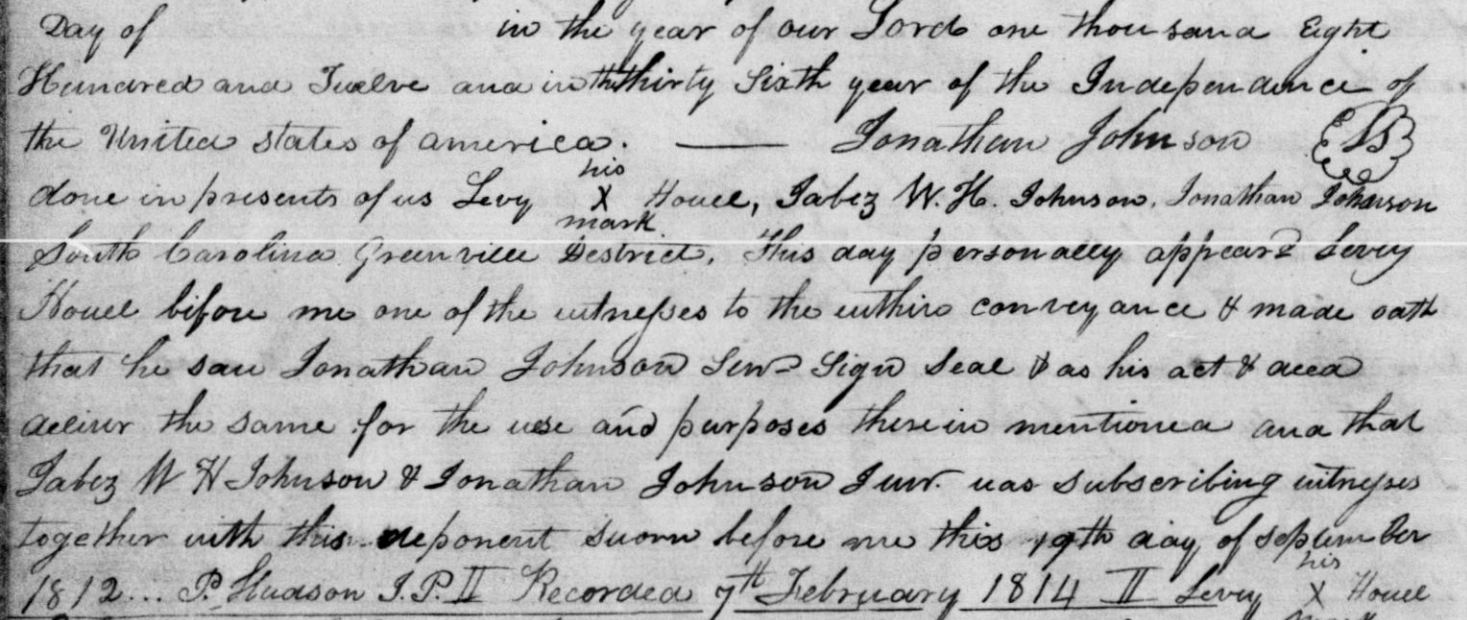 Day of in the year of our Lord one thousand Eight
Hundred and Twelve and in the thirty Sixth year of the Independence of
the United states of america. —— Jonathan Johnson
his
done in presents of us Levy X Houel, Jabez W. H. Johnson, Jonathan Johnson
mark
South Carolina Greenville Destrict, This day personally appeard Levey
Houel before me one of the witnesses to the within conveyance & made oath
that he saw Jonathan Johnson Sen Sign Seal & as his act & deed
deliver the same for the use and purposes therein mentioned and that
Jabez W H Johnson & Jonathan Johnson Junr. was subscribing witnesses
together with this deponent sworn before me this 19th day of september
his
1812... P. Hudson J.P. II Recorded 7th February 1814 II Levey X Houel
mark